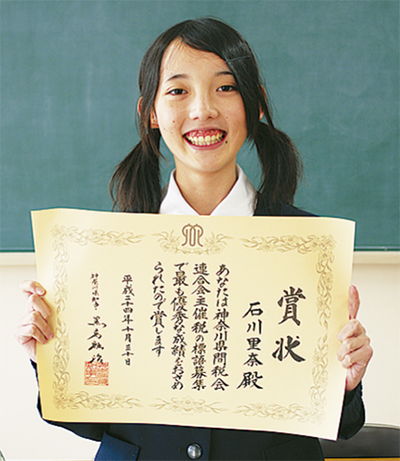 賞状
石川里奈 殿
あなたは神奈川県間税会
連合会主催税の標語募集
で最も優秀な成績をおさめ
られたので賞します
平成二十四年十月三十日
神奈川県知事